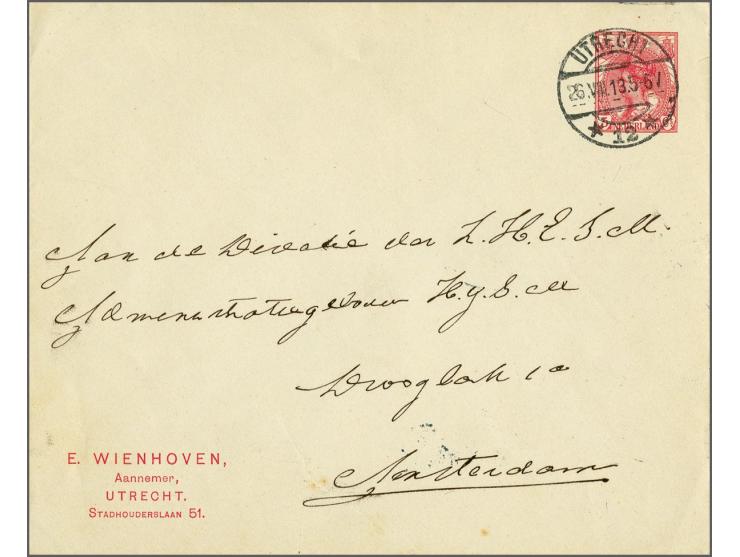 UTRECHT
26.VII.13.5-6N
12
NEDERLAND
Aan de Directie der L. H. E. S. M.
Administratiegebouw H.y.S.M
Droogbak 1a
Amsterdam
E. WIENHOVEN,
Aannemer,
UTRECHT.
STADHOUDERSLAAN 51.